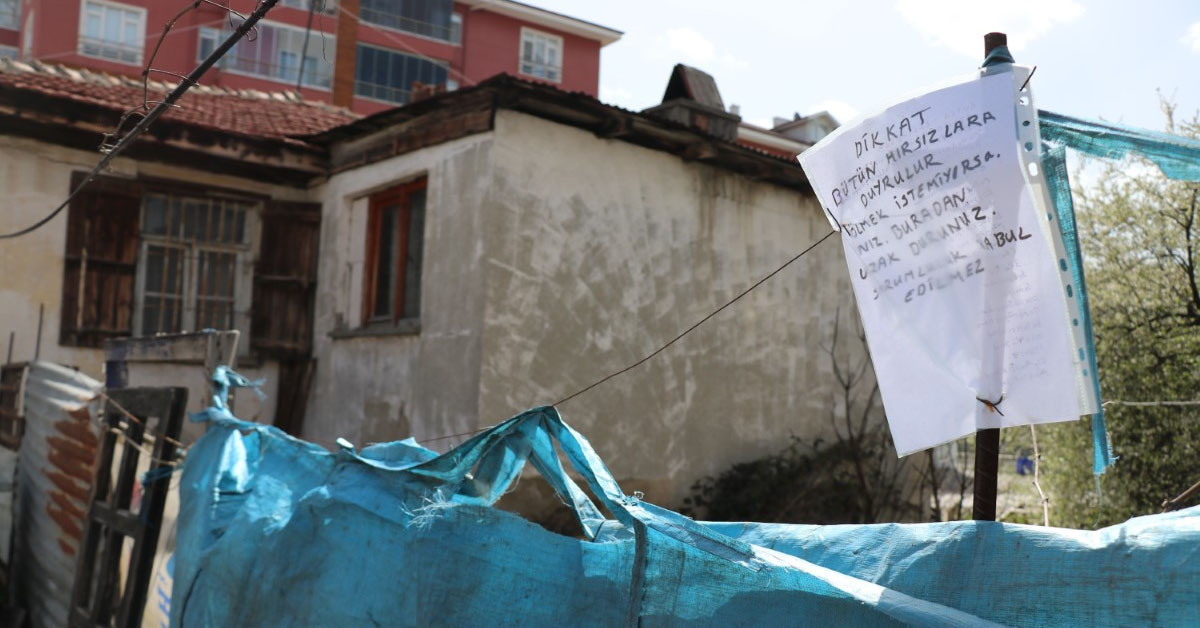 DİKKAT
BÜTÜN HIRSIZLARA
DUYRULUR
ÖLMEK İSTEMİYORSA.
NIZ. BURADAN.
UZAK DURUNUZ.
SORUMLULUK KABUL
EDİLMEZ